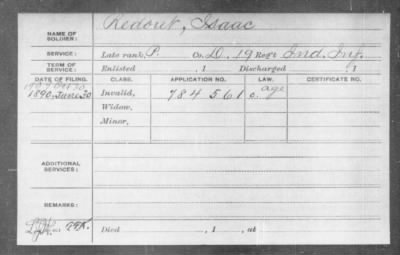 NAME OF SOLDIER: Redout, Isaac
SERVICE: Late rank, P. Co. D, 19 Reg't Ind. Inf.
TERM OF SERVICE: Enlisted , 1 Discharged , 1
DATE OF FILING. CLASS. APPLICATION NO. LAW. CERTIFICATE NO.
age
1890, June 30 Invalid, 784561 c.
Widow,
Minor,
ADDITIONAL SERVICES:
REMARKS:
Died , 1 , at